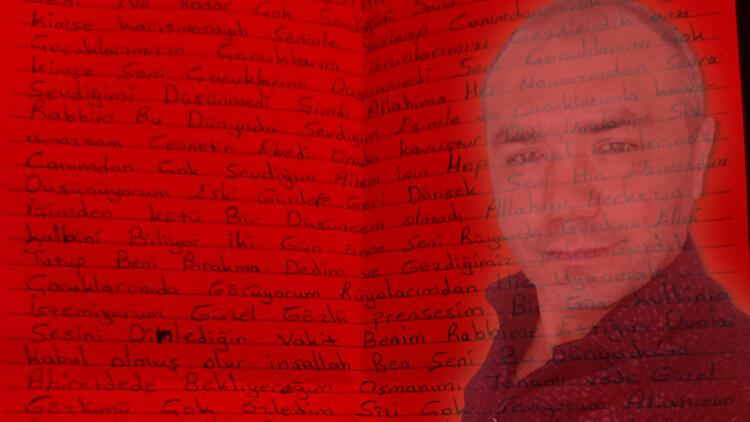 Ne kadar Çok Sevdiğimi Sana
Kimse karışmasaydı Seninle Yaşlanıp Canımdan Çok
Çocuklarımızın Çocuklarını Torunlarımızı Gezdirirdik ama
Kimse Seni Çocuklarımı Düşünmedi Seni Çocuklarımı Çok
Sevdiğimi Düşünmedi Şimdi Allahıma Her Namazımdan Sonra
Rabbim Bu Dünyada Sevdiğim Eşimle ve Çocuklarımla
amazsam Cennetin Ebedi Orada kavuştur Diye Dualarım Siz
Canımdan Çok Sevdiğim Ailem için Hep
Düşünüyorum Eski Günlere Geri Dönsek Seni Hiç Üzmezdim
İçimden kötü Bir Düşüncem olmadı Allahım Herkezin
kalbini Biliyor İki Gün önce Seni Rüyamda Gördüm Elimi
Tutup Beni Bırakma Dedim ve Gezdiğimiz Yerleri Gezdik
Çocuklarımıda Görüyorum Rüyalarımdan Hiç Uyanmak
İstemiyorum Güzel Gözlü prensesim Bir Gün kalbinin
Sesini Dinlediğin Vakit Benim Rabbime Ettiğim Dualar
kabul olmuş olur inşallah Ben Seni Bu Dünyadada
Ahiretdede Bekliyeceğim Osmanımı Tanamı vede Güzel
Gözlümü Çok özledim Sizi Çok Seviyorum Allahımın